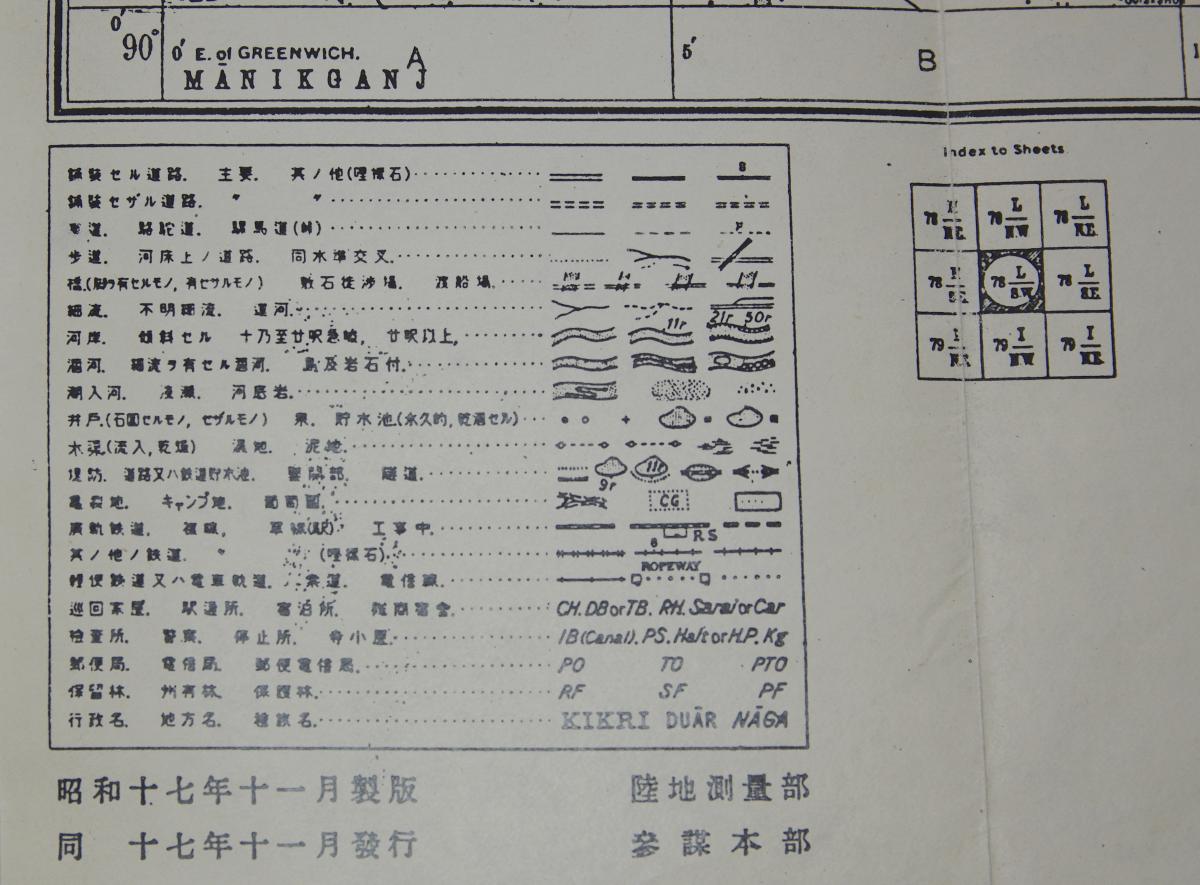 0′
90°
0′ E. of GREENWICH.
A
5′
B
MĀNIKGANJ
Index to Sheets
舗装セル道路. 主要. 其ノ他(哩標石) 8
舗装セザル道路. 〃 〃
車道. 駱駝道. 騾馬道(峠)
歩道. 河床上ノ道路. 同水準交叉.
橋.(脚ヲ有セルモノ, 有セザルモノ) 敷石徒渉場. 渡船場.
細流. 不明細流. 運河.
河岸. 傾斜セル 十乃至廿呎急崚, 廿呎以上, 11r 21r 50r
涸河. 細流ヲ有セル涸河. 島及岩石付.
潮入河. 浅瀬. 河底岩.
井戸.(石囲セルモノ, セザルモノ) 泉. 貯水池(永久的, 乾涸セル)
水渠.(流入, 乾燥) 湿地. 泥地.
堤防. 道路又ハ鉄道貯水池. 隧道. 9r 11r
亀裂地. キャンプ地. 葡萄園. CG
廣軌鉄道. 複線, 単線(駅) 工事中. RS
其ノ他ノ鉄道. 〃 (哩標石). 8
軽便鉄道又ハ電車軌道. 索道. 電信線. ROPEWAY
巡回家屋. 駅逓所. 宿泊所. 隊商宿舎. CH. DB or TB. RH. Sarai or Car
検査所. 警察. 停止所. 寺小屋. IB (Canal). PS. Halt or H.P. Kg
郵便局. 電信局. 郵便電信局. PO TO PTO
保留林. 州有林. 保護林. RF SF PF
行政名. 地方名. 種族名. KIKRI DUĀR NĀGA
78 N.E. 78 L N.W. 78 L N.E.
78 S.E. 78 L S.W. 78 L S.E.
79 N.E. 79 I N.W. 79 I N.E.
昭和十七年十一月製版 陸地測量部
同 十七年十一月發行 參謀本部